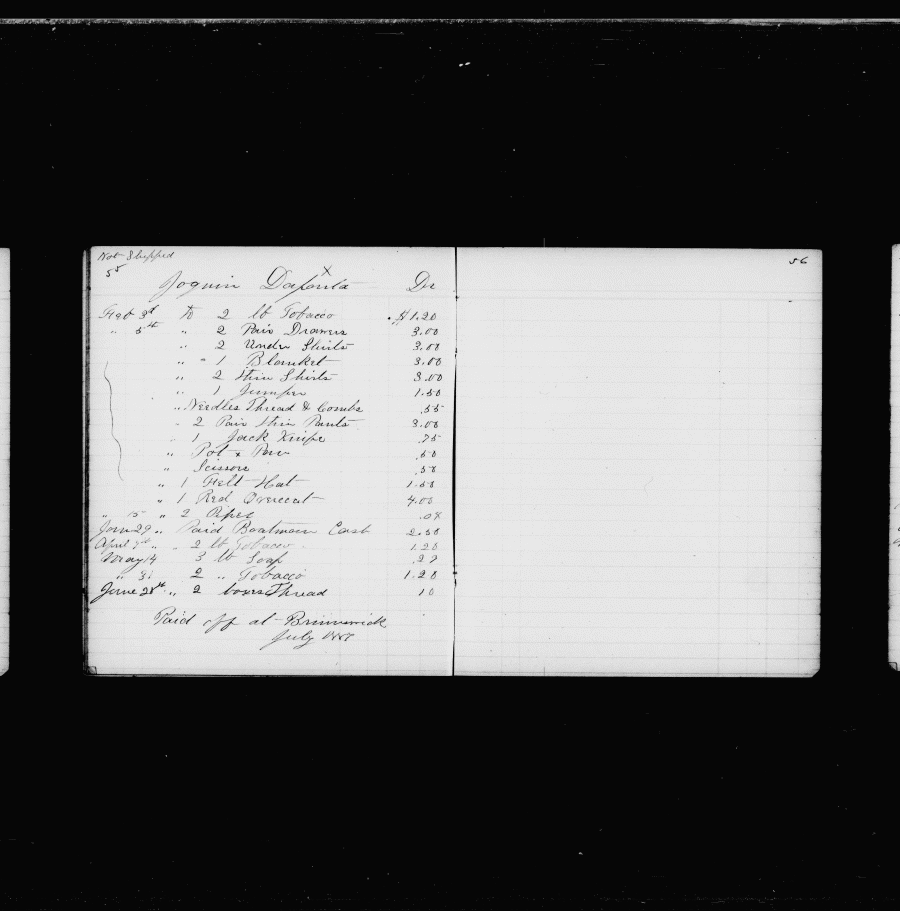 Not Shipped
55
Joquin Dafonta X Dr
Feb 3d to 2 lb Tobacco $1.20
" 5th " 2 Pair Drawers 3.00
" 2 Under Shirts 3.00
" " 1 Blanket 3.00
" 2 thin Shirts 3.00
" 1 Jumper 1.50
" Needles Thread & Combs .55
" 2 Pair thin Pants 3.00
" 1 Jack Knife .75
" Pot & Pan .50
" Scissors .50
" 1 Felt Hat 1.50
" 1 Red Overcoat 4.00
" 15 " 2 Pipes .08
" Paid Boatman Cash 2.50
April " " 2 lb Tobacco 1.20
May 14 3 lb Soap .27
" 31 2 " Tobacco 1.20
June 28th " 2 boxes Thread 10
Paid off at Brunswick
July
56